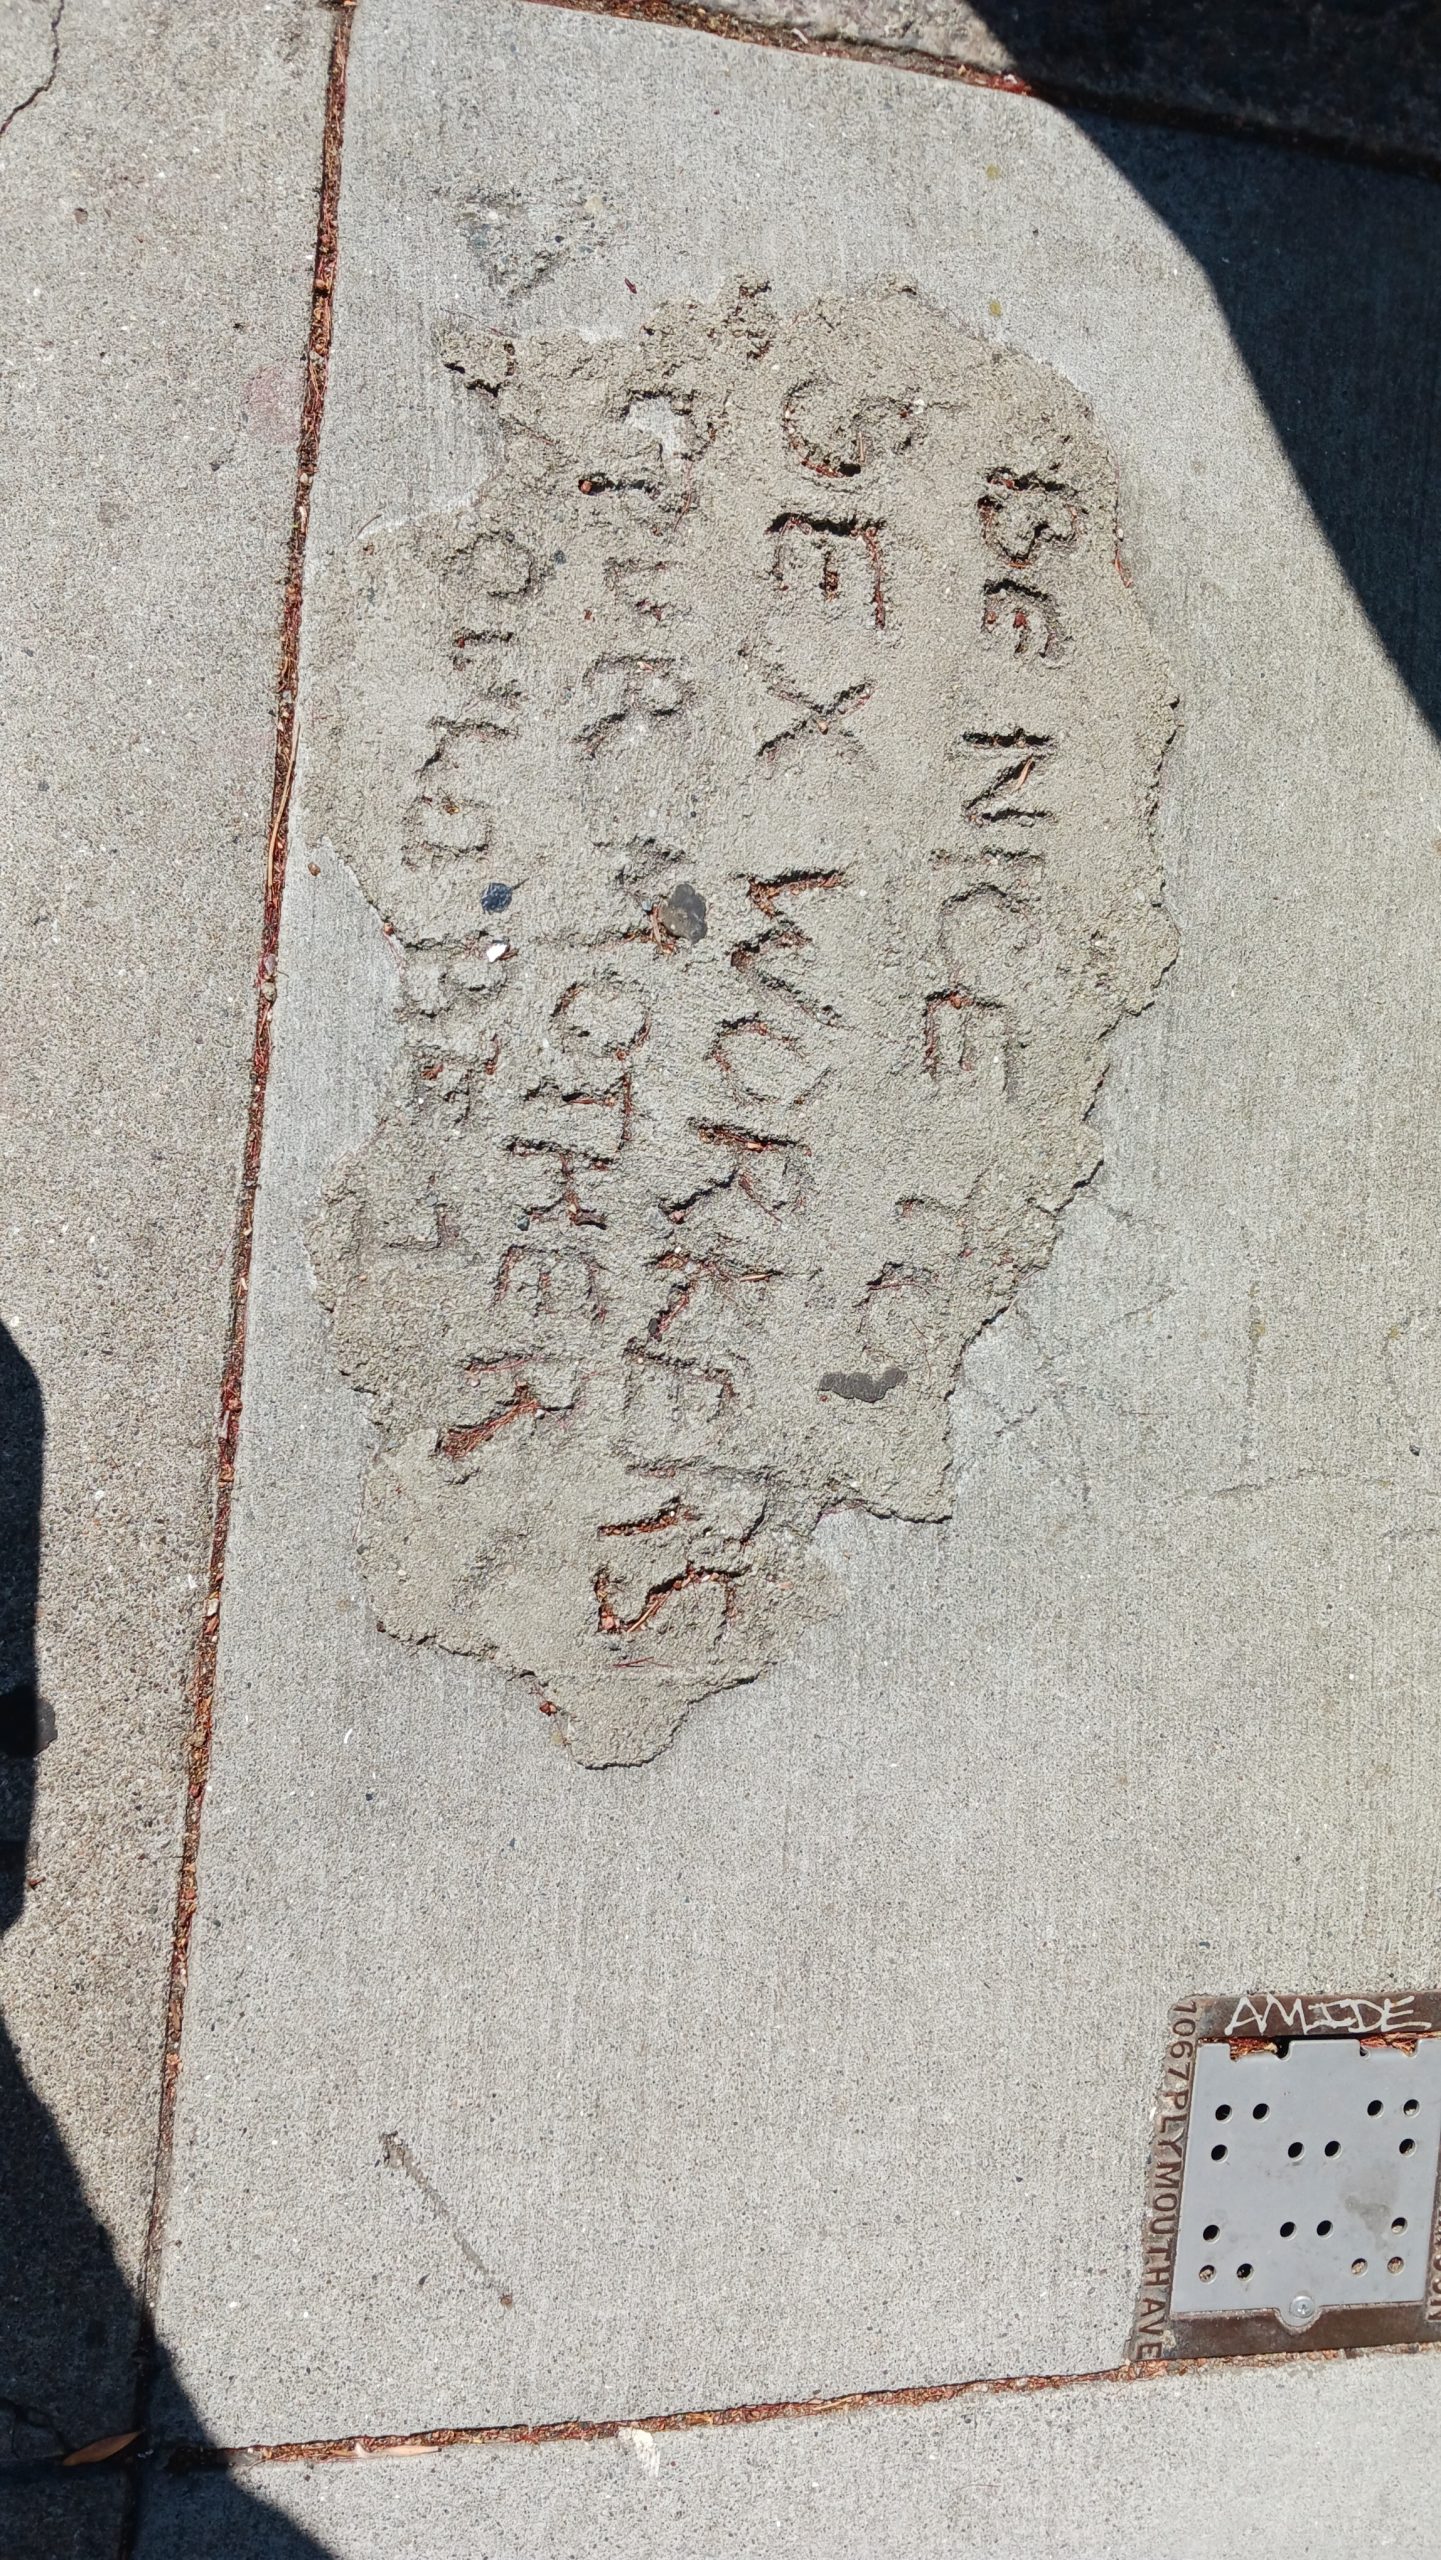 BE NICE TO
SEX WORKERS
YOUR MOTHER
COULD BE 1
AMIDE
1067 PLYMOUTH AVE